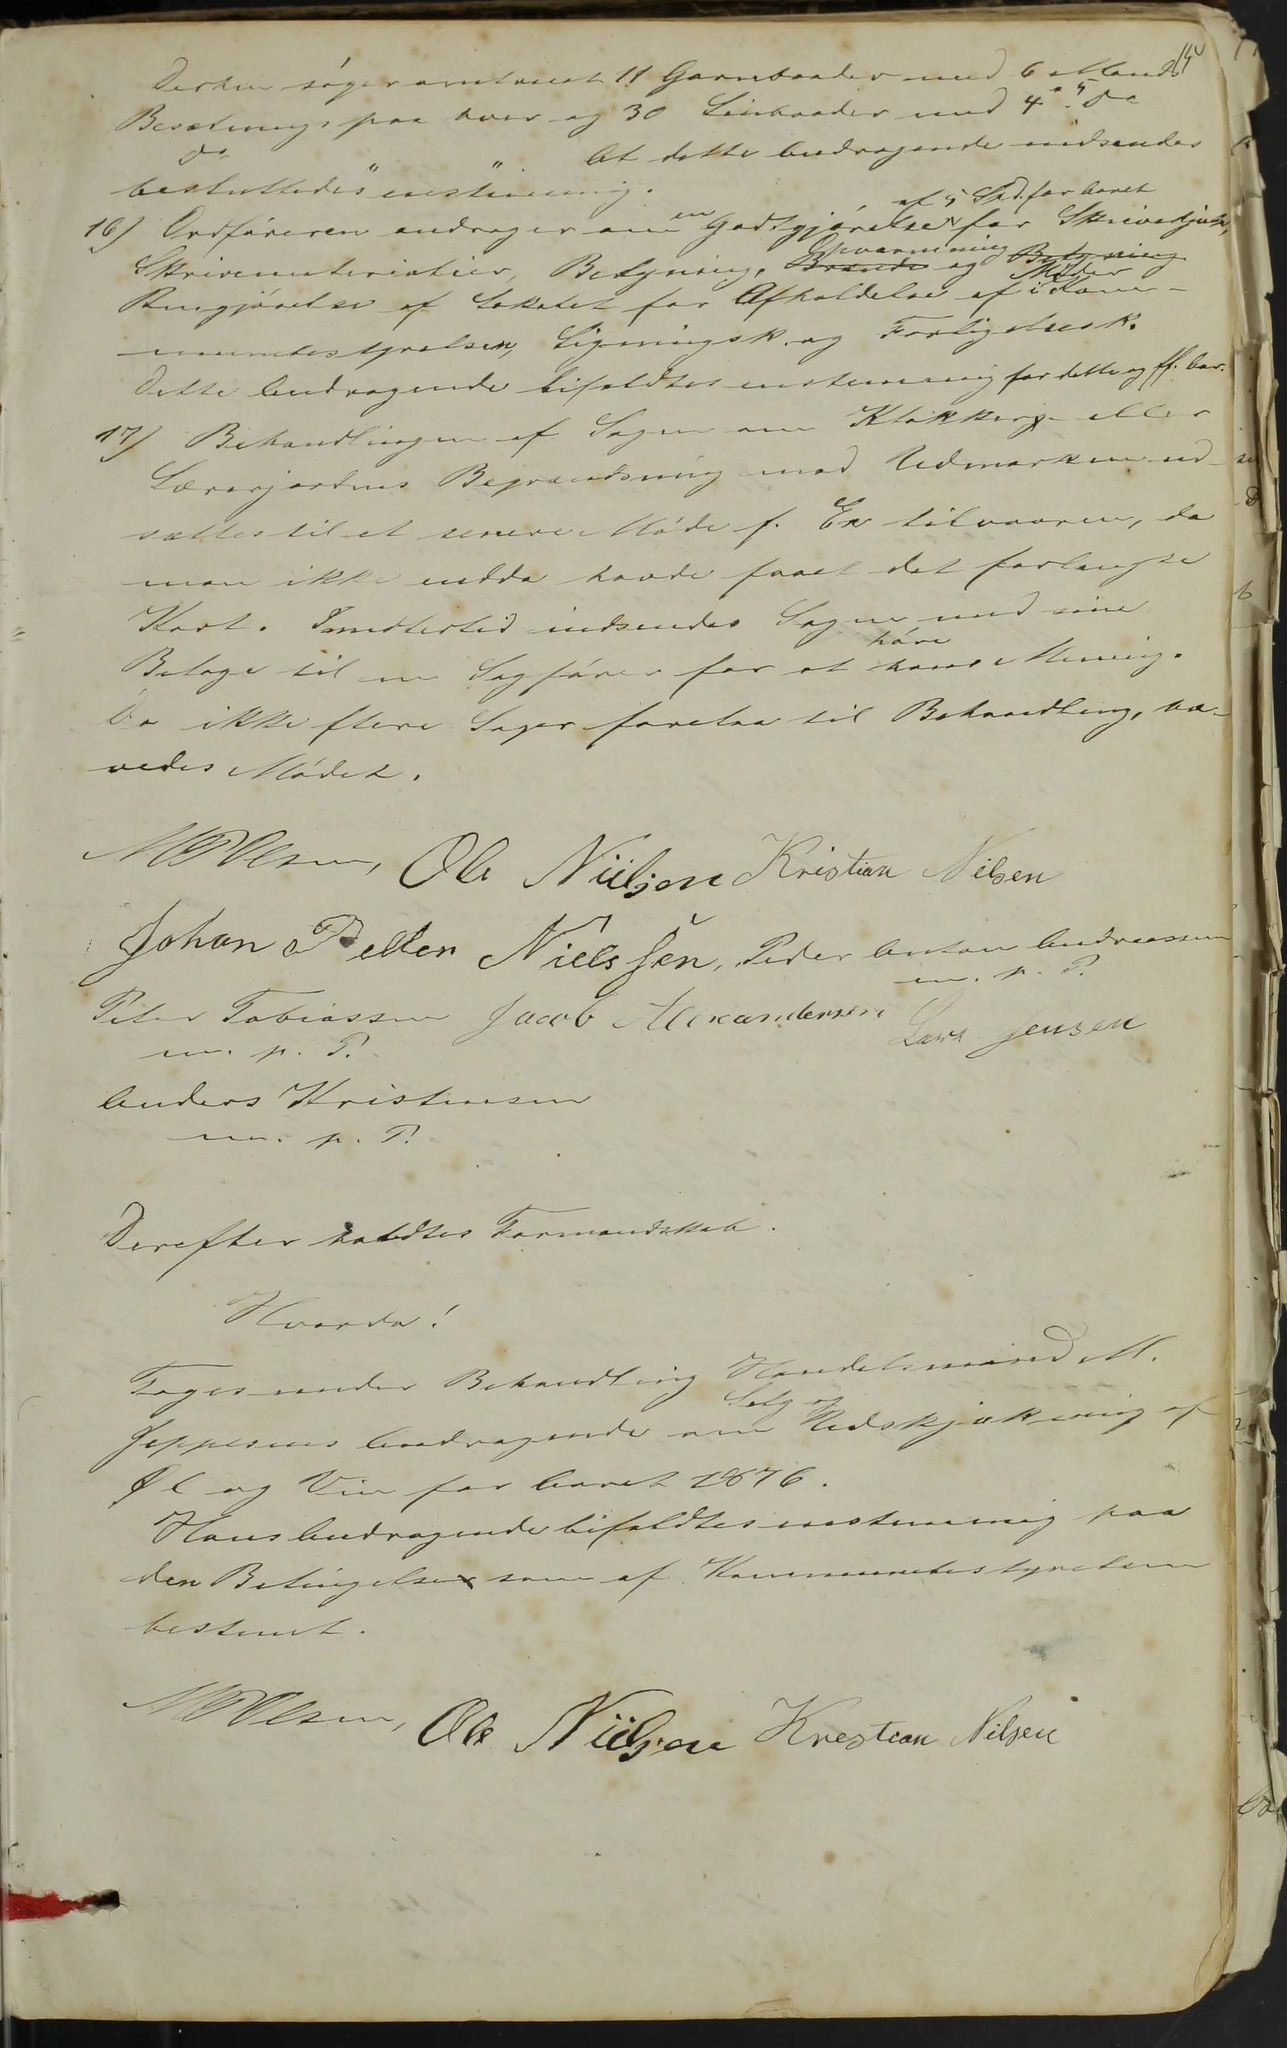 Derhen søger omtrent 11 Garnbaader med 6 Mands
Besætning paa hver og 30 Linbaader med 4 " Do
Do " " At dette Andragende indsendes
besluttedes enstemmig.
16) Ordføreren androger om en Godtgjørelse af 5 Spd. for Aaret for Skriverhjælp,
Skrivematerialier, Belysning, Opvarmning og
Rengjørelse af Lokalet for Afholdelse af Møder i Kom-
munestyrelsen, Ligningsk. og Forligelsesk.
Dette Andragende bifaldtes enstemmig for dette og ff. Aar.
17) Behandlingen af Sagen om Klokker- eller
Lærerjordens Begrændsning mod Udmarken ud-
sættes til et senere Møde f. Ex tilvaaren, da
man ikke endda havde faaet det forlangte
Kart. Imidlertid indsendes Sagen med sine
Bilage til en Sagfører for at høre hans Mening.
Da ikke flere Sager forelaa til Behandling, hæ-
vedes Mødet.
Olsen, Ole Nielsen Kristian Nilsen
Johan Petter Nielssen, Peder Anton Andreassen
m. p. P.
Peter Tobiassen Jacob Alexandersen Lars Jensen
m. p. P.
Anders Kristensen
m. p. P.
Derefter holdtes Formandskab.
Hvorda!
Toges under Behandling Handelsmand M.
Jeppesens Andragende om Salg og Udskjænkning af
Øl og Vin for Aaret 1876.
Hans Andragende bifaldtes enstemmig paa
den Betingelse som af Kommunestyrelsen
bestemt.
Olsen, Ole Nielsen Krestian Nilsen